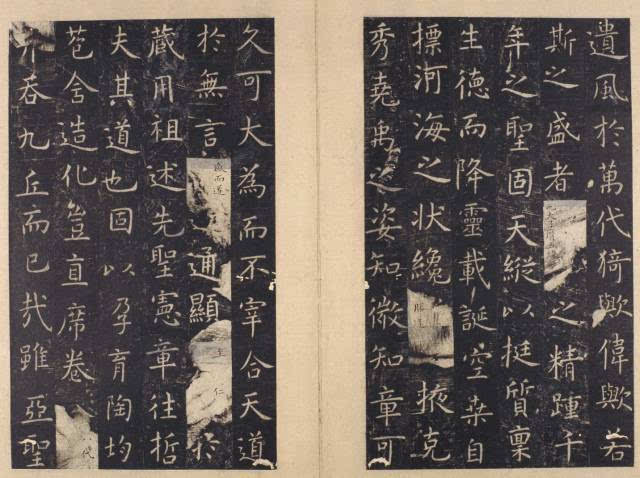 遺風於萬代猗歟偉歟若
斯之盛者之精踵千
年之聖固天縱以挺質稟
生德而降靈載誕空桒自
摽河海之狀纔掖克
秀堯禹之姿知微知章可
久可大為而不宰合天道
於無言感而遂通顯至仁於
藏用祖述先聖憲章往哲
夫其道也固以孕育陶均
苞含造化豈直席卷代
吞九丘而已哉雖亞聖